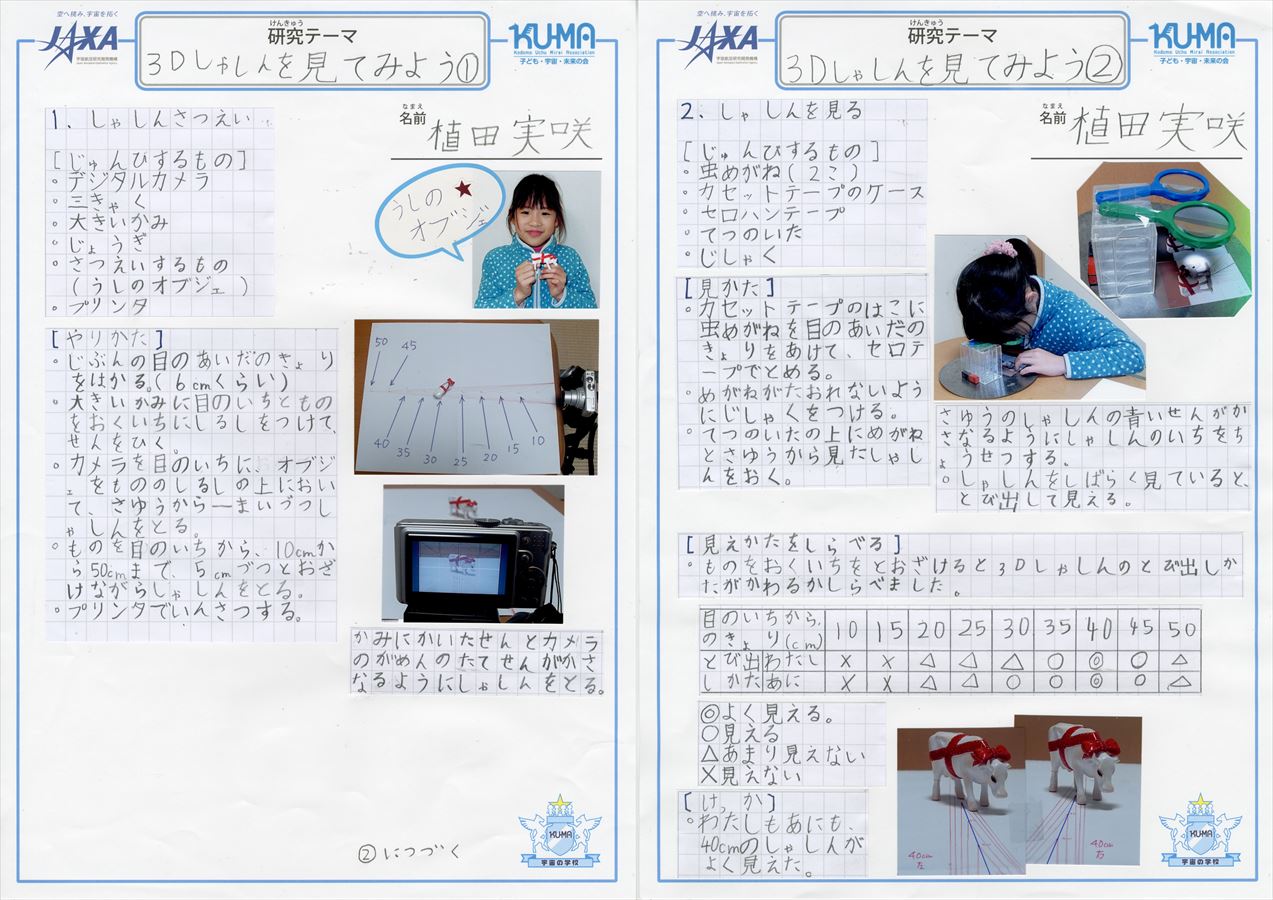 空へ挑み、宇宙を拓く
JAXA
宇宙航空研究開発機構
Japan Aerospace Exploration Agency
けんきゅう
研究テーマ
3Dしゃしんを見てみよう①
KU-MA
Kodomo Uchu Mirai Association
子ども・宇宙・未来の会
1. しゃしんさつえい
なまえ
名前
植田 実咲
[じゅんびするもの]
・デジタルカメラ
・三きゃく
・大きいかみ
・じょうぎ
・さつえいするもの
(うしのオブジェ)
・プリンタ
うしの★
オブジェ
[やりかた]
・じぶんの目のあいだのきょり
をはかる。(6cmくらい)
・大きいかみに目のいちともの
をおくいちにしるしをつけて、
せんをひく。
・カメラを目のいちに、オブジ
ェをもののしるしの上におい
て、さゆうから一まいづつし
ゃしんをとる。
・ものを目のいちから、10cmか
ら50cmまで、5cmづつとおざ
けながらしゃしんをとる。
・プリンタでいんさつする。
50
45
40
35
30
25
20
15
10
かみにかいたせんとカメラ
のがめんのたてせんがかさ
なるようにしゃしんをとる。
②につづく
KU-MA
宇宙の学校
空へ挑み、宇宙を拓く
JAXA
宇宙航空研究開発機構
Japan Aerospace Exploration Agency
けんきゅう
研究テーマ
3Dしゃしんを見てみよう②
KU-MA
Kodomo Uchu Mirai Association
子ども・宇宙・未来の会
2. しゃしんを見る
なまえ
名前
植田 実咲
[じゅんびするもの]
・虫めがね(2こ)
・カセットテープのケース
・セロハンテープ
・てつのいた
・じしゃく
[見かた]
・カセットテープのはこに
虫めがねを目のあいだの
きょりをあけて、セロテ
ープでとめる。
・めがねがたおれないよう
にじしゃくをつける。
・てつのいたの上にめがね
とさゆうから見たしゃし
んをおく。
さゆうのしゃしんの青いせんがか
さなるようにしゃしんのいちをち
ょうせつする。
・しゃしんをしばらく見ていると、
とび出して見える。
[見えかたをしらべる]
・ものをおくいちをとおざけると3Dしゃしんのとび出しか
たがかわるかしらべました。
目のいちから、のきょり(cm) 10 15 20 25 30 35 40 45 50
とび出 わたし × × △ △ △ ○ ◎ ○ △
しかた あに × × △ △ ○ ○ ◎ ○ △
◎よく見える。
○見える
△あまり見えない
×見えない
[けっか]
・わたしもあにも、
40cmのしゃしんが
よく見えた。
40cm
左
40cm
右
KU-MA
宇宙の学校